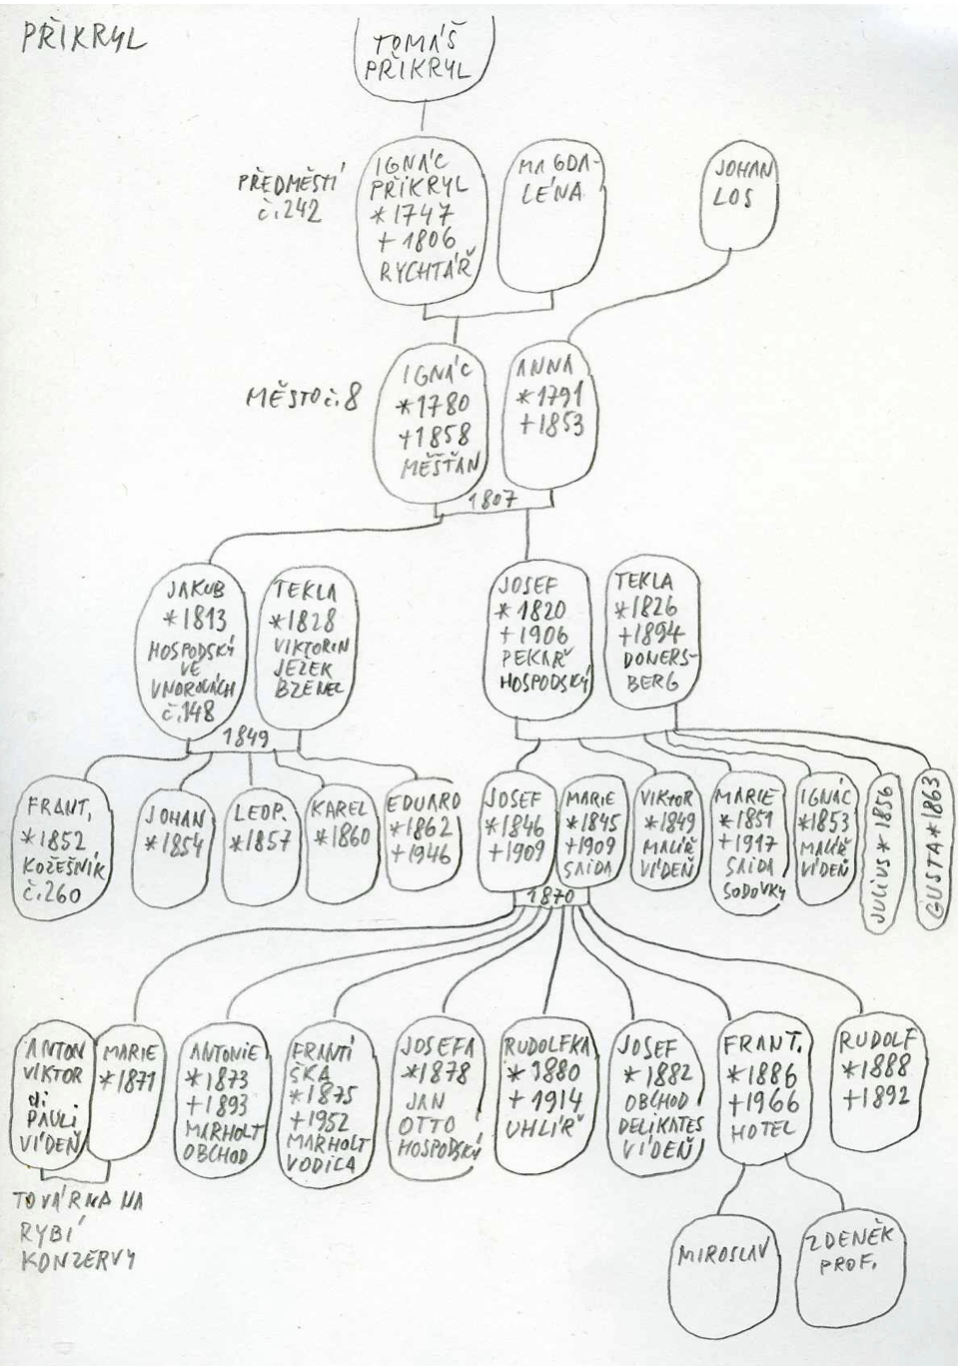 PŘIKRYL
TOMÁŠ
PŘIKRYL
PŘEDMĚSTÍ
č.242
IGNÁC
PŘIKRYL
*1747
+1806
RYCHTÁŘ
MAGDA-
LÉNA
JOHAN
LOS
MĚSTO č.8
IGNÁC
*1780
+1858
MĚŠŤAN
ANNA
*1791
+1853
1807
JAKUB
*1813
HOSPODSKÝ
VE
VNOROVÁCH
č.148
TEKLA
*1828
VIKTORIN
JEŽEK
BZENEC
JOSEF
*1820
+1906
PEKAŘ
HOSPODSKÝ
TEKLA
*1826
+1894
DONERS-
BERG
1849
FRANT.
*1852
KOŽEŠNÍK
č.260
JOHAN
*1854
LEOP.
*1857
KAREL
*1860
EDUARD
*1862
+1946
JOSEF
*1846
+1909
MARIE
*1845
+1909
SAIDA
VIKTOR
*1849
MALÍŘ
VÍDEŇ
MARIE
*1851
+1917
SAIDA
SODOVKY
IGNÁC
*1853
MALÍŘ
VÍDEŇ
JULIUS *1856
GUSTA *1863
1870
ANTON
VIKTOR
di
PAULI
VÍDEŇ
MARIE
*1871
ANTONIE
*1873
+1893
MARHOLT
OBCHOD
FRANTI
ŠKA
*1875
+1952
MARHOLT
VODICA
JOSEFA
*1878
JAN
OTTO
HOSPODSKÝ
RUDOLFKA
*1880
+1914
UHLÍŘ
JOSEF
*1882
OBCHOD
DELIKATES
VÍDEŇ
FRANT.
*1886
+1966
HOTEL
RUDOLF
*1888
+1892
TOVÁRNA NA
RYBÍ
KONZERVY
MIROSLAV
ZDENĚK
PROF.